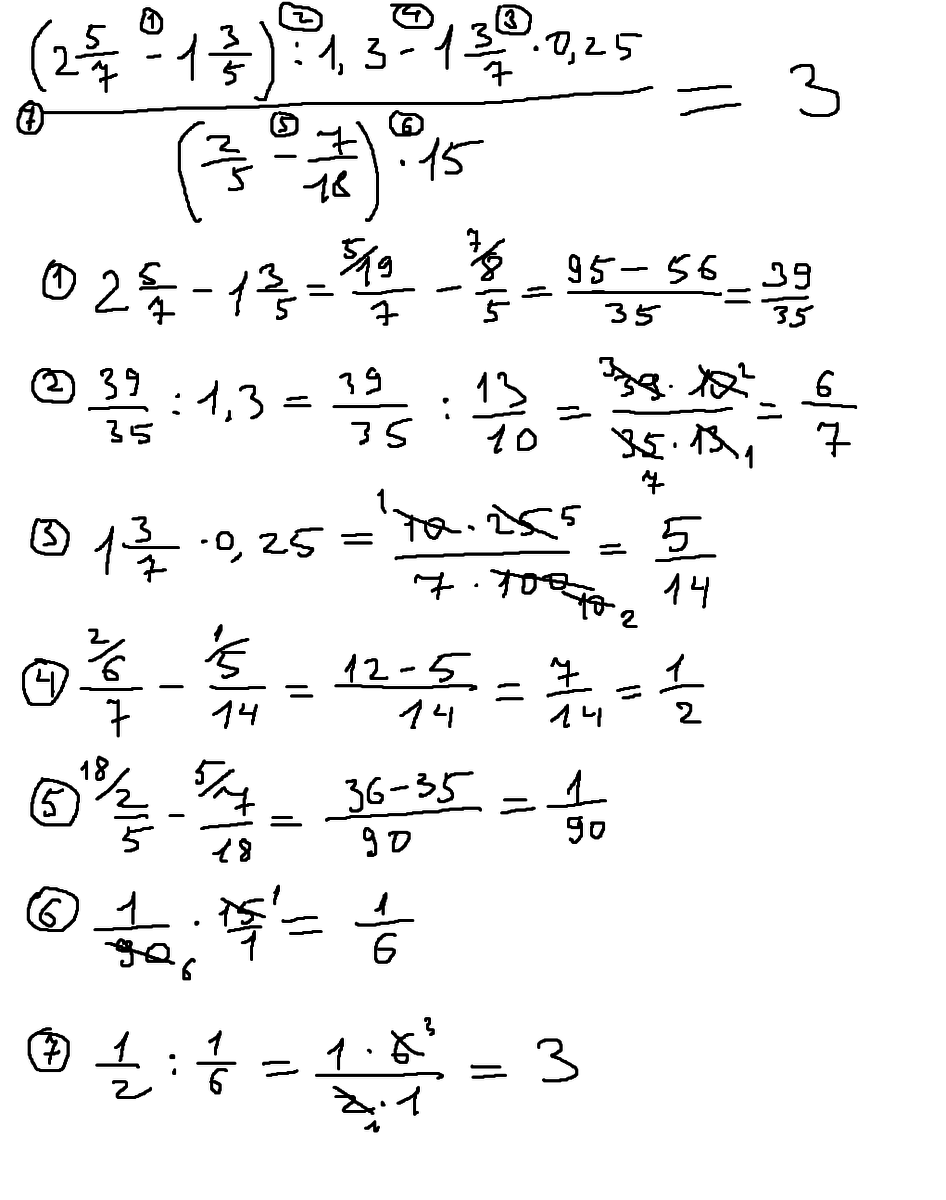 (2 5/7 - 1 3/5) : 1,3 - 1 3/7 · 0,25 = 3
① ② ④ ③
⑦
(2/5 - 7/18) · 15
⑤ ⑥
① 2 5/7 - 1 3/5 = 5/ 19/7 - 7/ 8/5 = (95 - 56)/35 = 39/35
② 39/35 : 1,3 = 39/35 : 13/10 = (39 3 · 10 2)/(35 7 · 13 1) = 6/7
③ 1 3/7 · 0,25 = (10 1 · 25 5)/(7 · 100 10 2) = 5/14
④ 2/ 6/7 - 1/ 5/14 = (12 - 5)/14 = 7/14 = 1/2
⑤ 18/ 2/5 - 5/ 7/18 = (36 - 35)/90 = 1/90
⑥ 1/90 6 · 15 1/1 = 1/6
⑦ 1/2 : 1/6 = (1 · 6 3)/(2 1 · 1) = 3